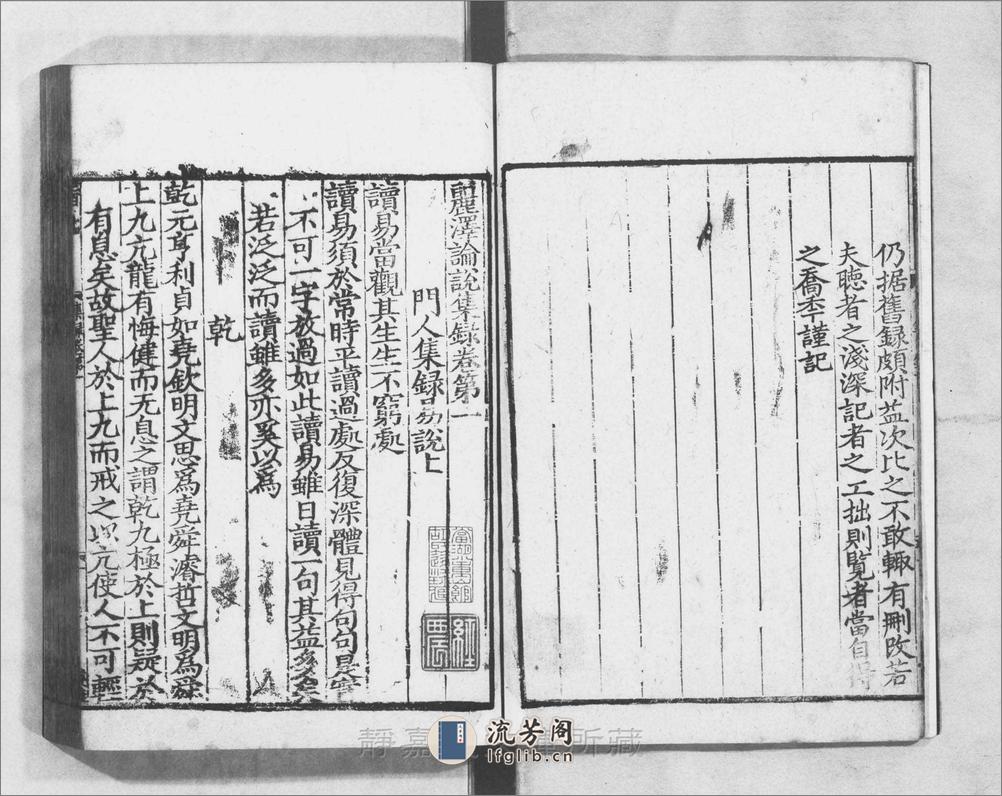 仍据舊録頗附益次比之不敢輙有刪改若
夫聴者之淺深記者之工拙則覧者當自得
之喬年謹記
麗澤論說集録卷第一
門人集録易說上
讀易當觀其生生不窮處
讀易須於常時平讀過處反復深體見得句句是實
不可一字放過如此讀易雖日讀一句其益多矣
若泛泛而讀雖多亦奚以爲
乾
乾元亨利貞如堯欽明文思爲堯舜濬哲文明爲舜
上九亢龍有悔健而无息之謂乾九極於上則疑於
有息矣故聖人於上九而戒之以亢使人不可輕
靜嘉 所藏
流芳阁
lfglib.cn